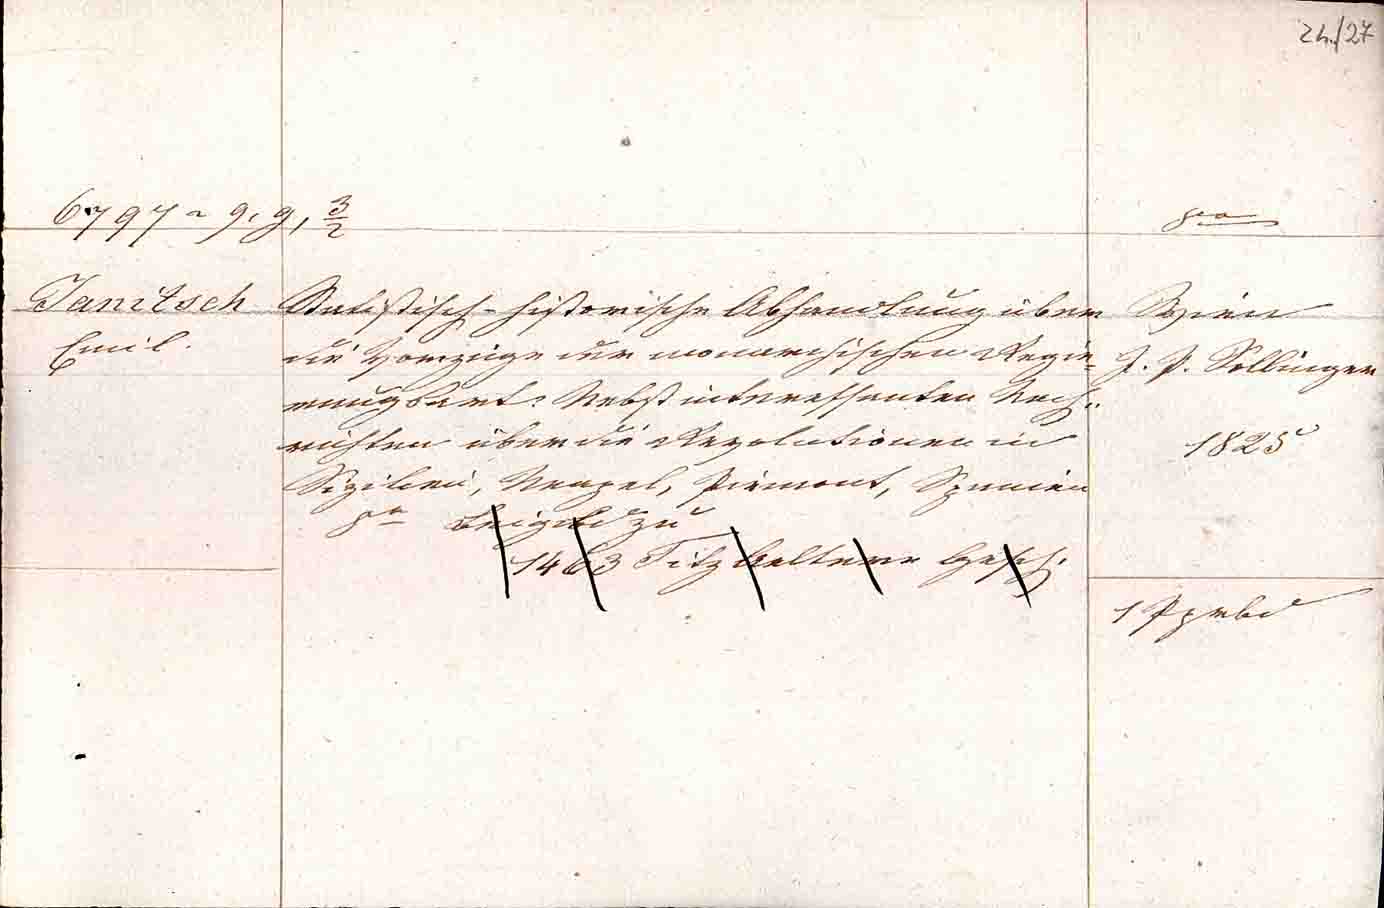 24/27
6797 ~ g, g, 3/2
8va
Janitsch
Emil.
Statistisch-historische Abhandlung über
die Vorzüge der monarchischen Regie-
rungsart. Nebst interessanten Nach-
richten über die Revolutionen in
Sizilien, Neapel, Piemont, Spanien
8° beigebd zu
1463 Titz Aeltere Gesch.
Wien
J. P. Sollinger
1825
1 Ppebd